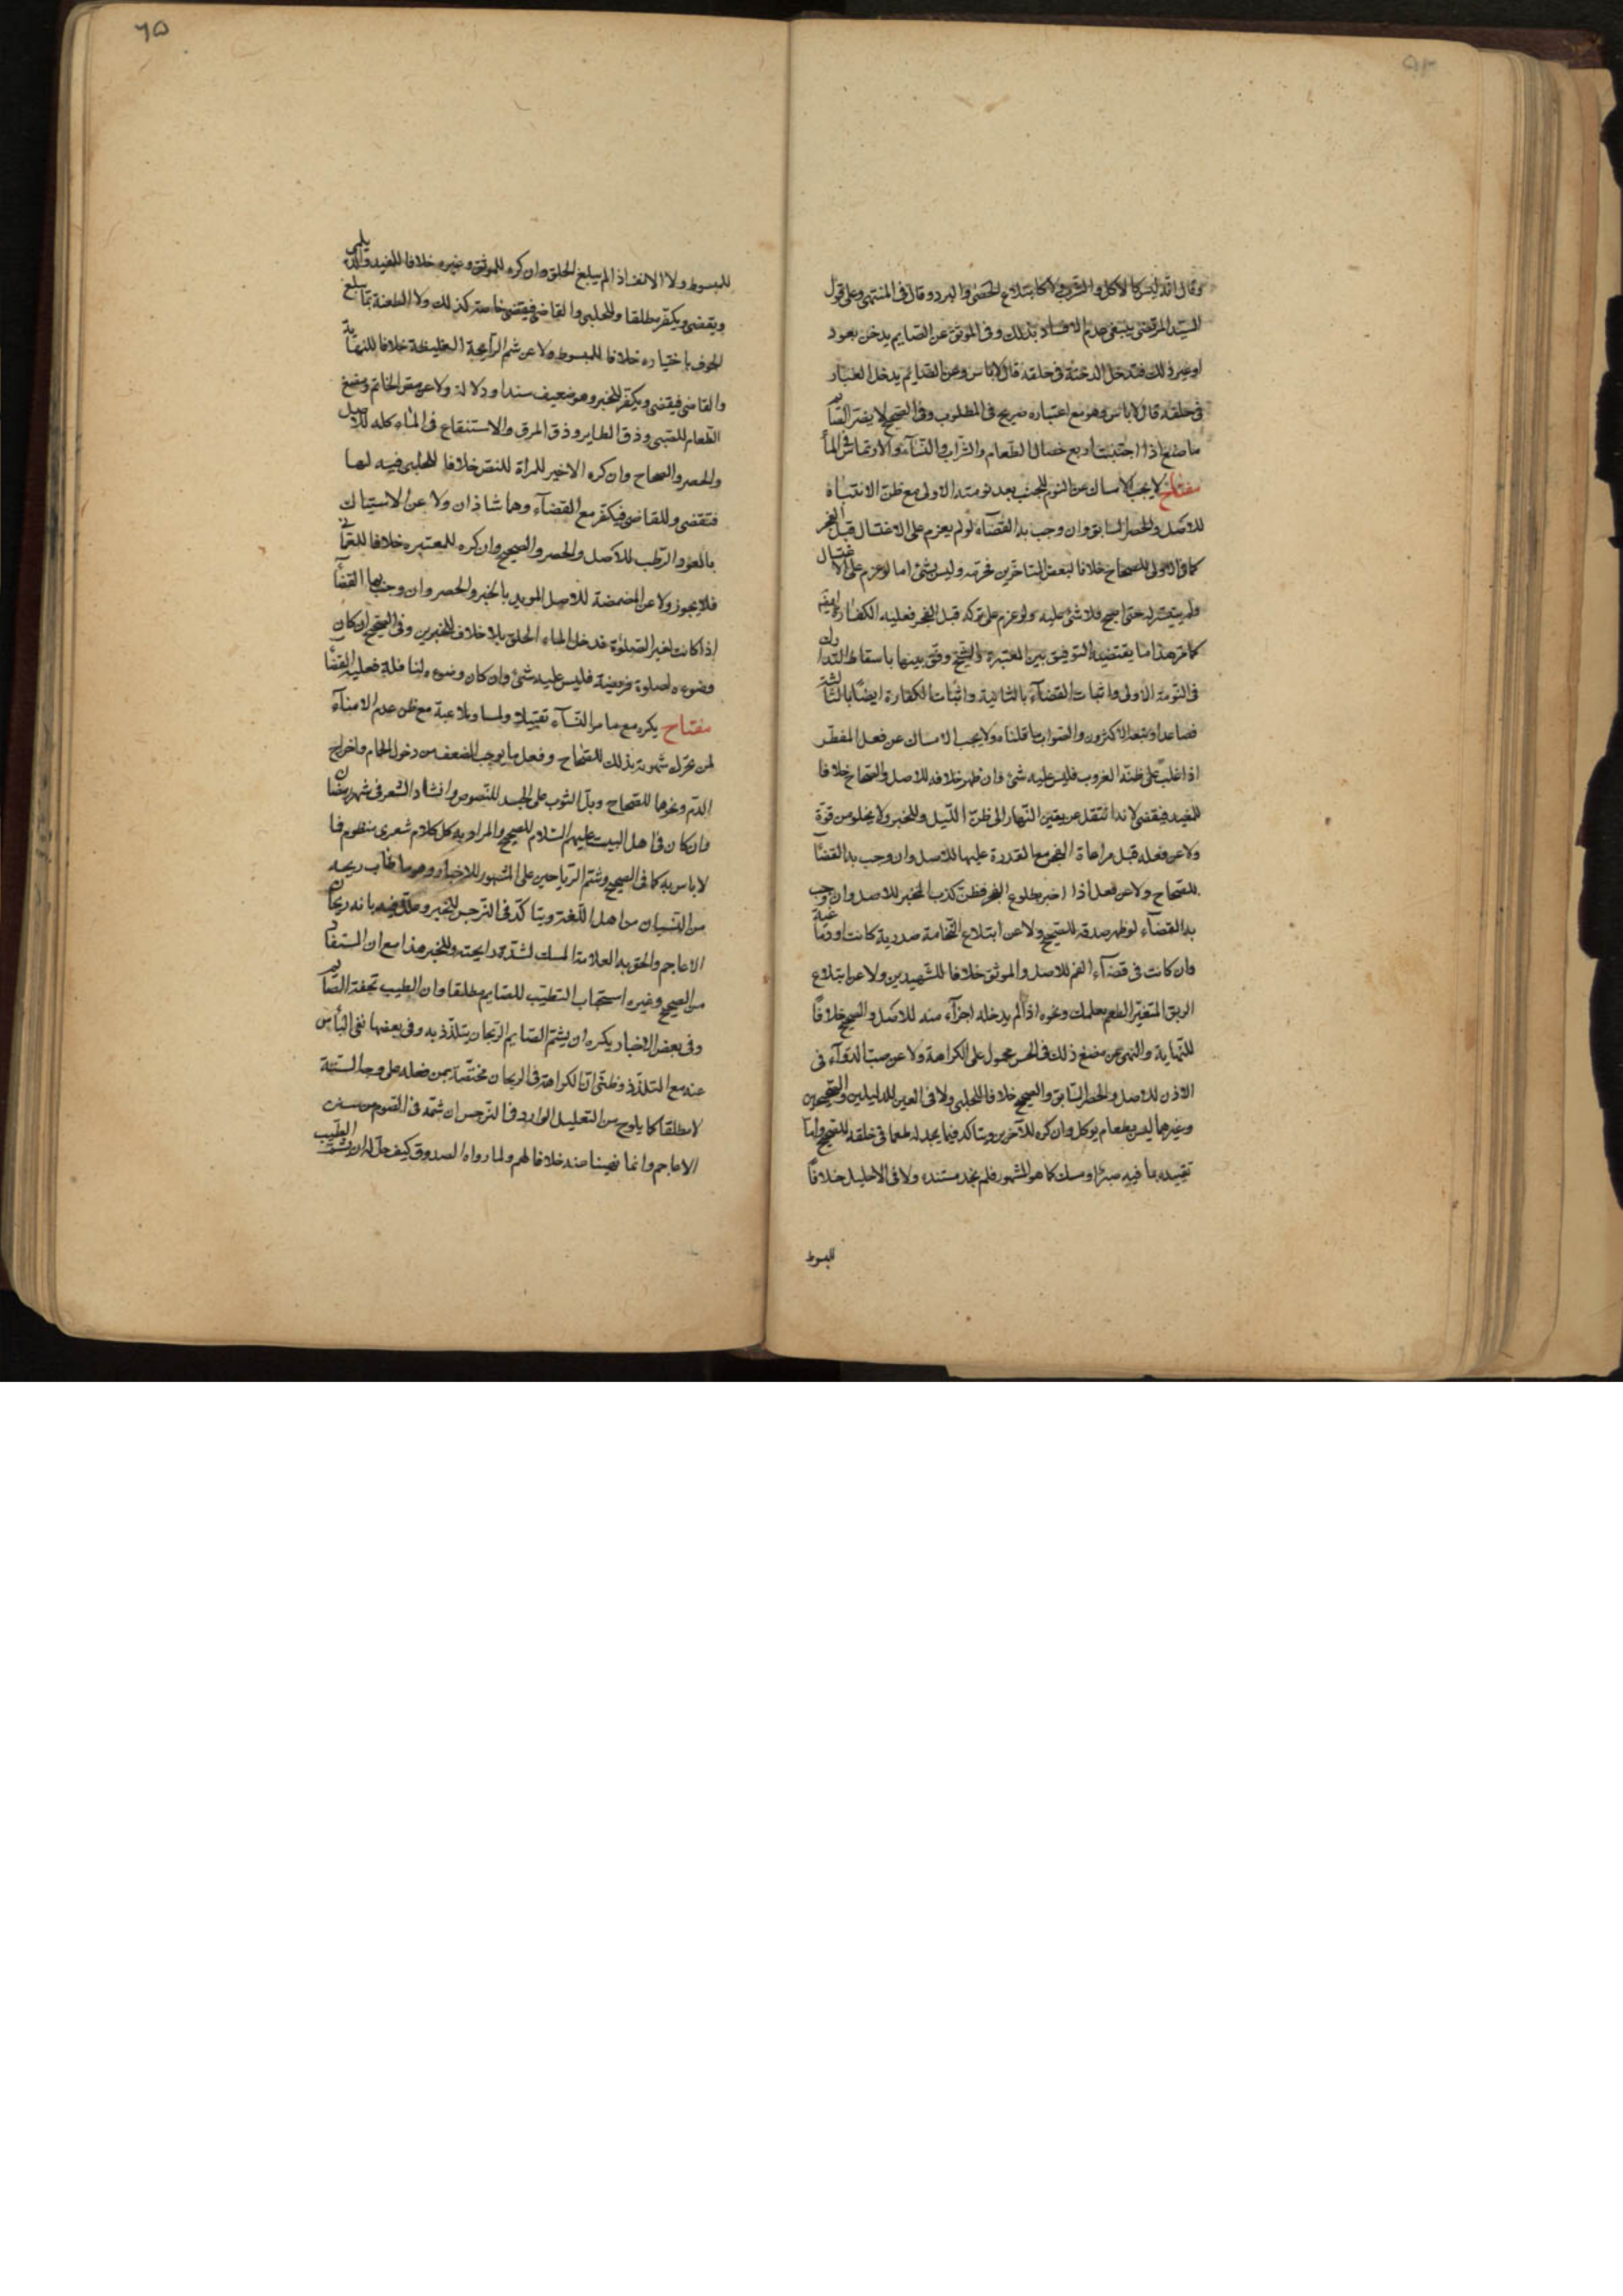 وقال انّه ليس كالاكل والشرب ولا كابتلاع الحصى والبرد وقال فى المنتهى وعلى قول
السيّد المرتضى ينبغى عدم الافساد بذلك وفى الموثق عن الصايم يدخن بعود
او غير ذلك فتدخل الدخنة فى حلقه قال لا باس وعن الصايم يدخل الغبار
فى حلقه قال لا باس وهو مع اعتباره صريح فى المطلوب وفى الصحيح لا يضر الصايم
ما صنع اذا اجتنب اربع خصال الطعام والشراب والنسآء والارتماس فى المآء
مفتاح لا يجب الامساك عن النوم للجنب بعد نومته الاولى مع ظنّ الانتباه
للاصل والحصر السابق وان وجب به القضآء لو لم يعزم على الاغتسال قبل الفجر
كما فى الاولى للصحاح خلافا لبعض المتاخّرين فحرّمه وليس بشئ اما لو عزم على الاغتسال
ولم يتيسّر له حتى اصبح فلا شئ عليه ولو عزم على تركه قبل الفجر فعليه الكفارة ايضم
كما مرّ هذا ما يقتضيه التوفيق بين المعتبرة والشيخ وفّق بينها باسقاط التدارك
فى النّومة الاولى واثبات القضآء بالثانية واثبات الكفارة ايضًا بالثالثة
فصاعدا وتبعه الاكثرون والصواب ما قلناه ولا يجب الامساك عن فعل المفطر
اذا غلب على ظنّه الغروب فليس عليه شئ وان ظهر خلافه للاصل والصحاح خلافا
للمفيد فيقضى لانه انتقل عن يقين النّهار الى ظنّ اللّيل وللخبر ولا يخلو من قوّة
ولا عن فعله قبل مراعاة الفجر مع القدرة عليها للاصل وان وجب به القضآء
للصحاح ولا عن فعل اذا اخبر بطلوع الفجر فظنّ كذب المخبر للاصل وان وجب
به القضآء لو ظهر صدقه للصحيح ولا عن ابتلاع النّخامة صدرية كانت او دماغية
وان كانت فى فضآء الفم للاصل والموثق خلافا للشّهيدين ولا عن ابتلاع
الريق المتغيّر الطعم بعلك ونحوه اذا لم يدخله اجزآء منه للاصل والصحيح خلافًا
للنّهاية والنهى عن مضغ ذلك فى الحسن محمول على الكراهة ولا عن صبّ الدوآء فى
الاذن للاصل والحصر السّابق والصحيح خلافا للحلبى ولا فى العين للدليلين والصحيحين
وغيرهما ليس بطعام يوكل وان كره للآخرين ويتاكد فيما يجد له طعما فى حلقه للصحيح وامّا
تقييده بما فيه صبر او مسك كما هو المشهور فلم نجد مستنده ولا فى الاحليل خلافًا
للمبسوط
٦٥
للمبسوط ولا الانف اذا لم يبلغ الحلق وان كره للموثق وغيره خلافا للمفيد والديلمى
ويقضى ويكفر مطلقا وللحلبى والقاضى فيقضى خاصة كذلك ولا الطعنة بما يبلغ
الجوف باختياره خلافا للمبسوط ولا عن شم الرآيحة الغليظة خلافا للنهاية
والقاضى فيقضى ويكفر للخبر وهو ضعيف سندا ودلالة ولا عن مص الخاتم ومضغ
الطّعام للصّبى وذق الطاير وذق المرق والاستنقاع فى المآء كله للاصل
والحصر والصحاح وان كره الاخير للمراة للنص خلافا للحلبى فيه لها
فتقضى وللقاضى فيكفر مع القضآء وهما شاذان ولا عن الاستياك
بالعود الرّطب للاصل والحصر والصحيح وان كره للمعتبره خلافا للعمانى
فلا يجوز ولا عن المضمضة للاصل المويد بالخبر والحصر وان وجب بها القضآء
اذا كانت لغير الصّلوة فدخل المآء الحلق بلا خلاف للخبرين وفى الصحيح ان كان
وضوءه لصلوة فريضة فليس عليه شئ وان كان وضوءه لنافلة فعليه القضآء
مفتاح يكره مع ما مر النّسآء تقبيلا ولمسا وملاعبة مع ظن عدم الامنآء
لمن تحرّك شهوته بذلك للصّحاح وفعل ما يوجب الضعف من دخول الحمام واخراج
الدّم ونحوها للصّحاح وبلّ الثوب على الجسد للنّصوص وانشاد الشعر فى شهر رمضان
وان كان فى اهل البيت عليهم السّلام للصحيح والمراد به كل كلام شعرى منظوم فا
لا باس به كما فى الصحيح وشمّ الرّياحين على المشهور للاخبار وهو ما طاب ريحه
من النّبات من اهل اللّغة ويتاكّد فى النّرجس للخبر وعلّل فيه بانه ريحان
الاعاجم والحق به العلامة المسك لشدّة رايحته وللخبر هذا مع ان المستفاد
من الصحيح وغيره استحباب التطيّب للصّايم مطلقا وان الطيب تحفة الصّايم
وفى بعض الاخبار يكره ان يشمّ الصّايم الرّيحان يتلذّذ به وفى بعضها نفى البأس
عنه مع التلذّذ وظنّى انّ الكراهة فى الريحان مختصّة بمن فعله على وجه السنّة
لا مطلقا كما يلوح من التعليل الوارد فى النّرجس ان شمّه فى الصّوم من سنن
الاعاجم وانما نهينا عنه خلافا لهم ولما رواه الصدوق كيف حلّ له ان يشمّ الطّيب